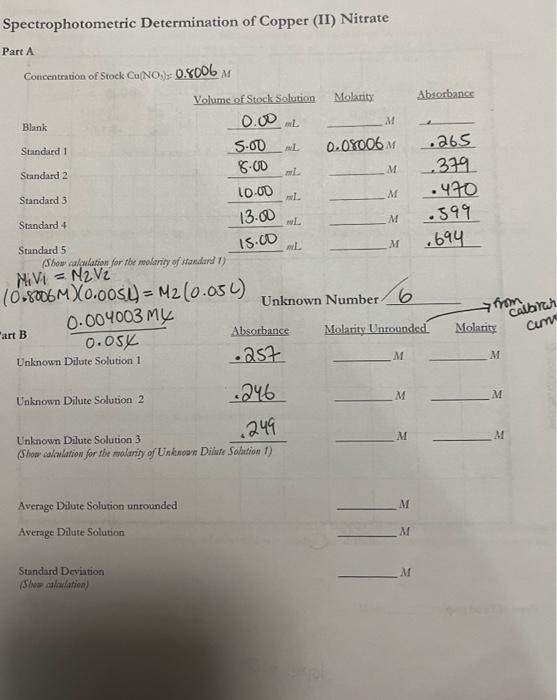 Spectrophotometric Determination of Copper (II) Nitrate
Part A
Concentration of Stock Cu(NO3)2: 0.8006 M
Volume of Stock Solution Molarity Absorbance
Blank 0.00 mL M
Standard 1 5.00 mL 0.08006 M .265
Standard 2 8.00 mL M .379
Standard 3 10.00 mL M .470
Standard 4 13.00 mL M .599
Standard 5 15.00 mL M .694
(Show calculation for the molarity of standard 1)
M1V1 = M2V2
(0.8006M)(0.005L) = M2(0.05L) Unknown Number 6
0.004003 ML
0.05L
art B Absorbance Molarity Unrounded Molarity → from calibrat curv
Unknown Dilute Solution 1 .257 M M
Unknown Dilute Solution 2 .246 M M
Unknown Dilute Solution 3 .249 M M
(Show calculation for the molarity of Unknown Dilute Solution 1)
Average Dilute Solution unrounded M
Average Dilute Solution M
Standard Deviation M
(Show calculation)